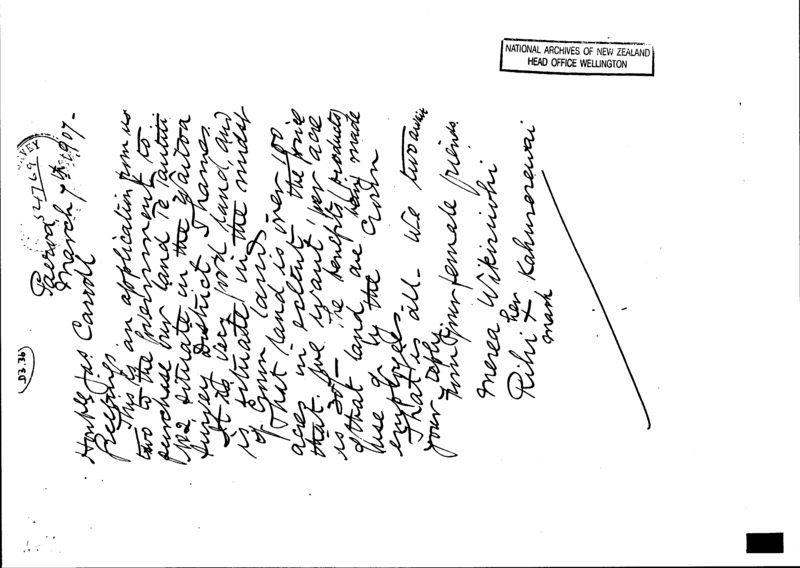 NATIONAL ARCHIVES OF NEW ZEALAND
HEAD OFFICE WELLINGTON
D3.36
54769
Paeroa
March 7th 1907-
Honble Jas Carroll
Greetings
This is an application from us
two to the Government to
purchase our land Te Tautiti
situate in the Waitoa
Survey District Thames.
It is very good land, and
is situate in the midst
of Crown lands
That land is over 100
acres in extent the price
that we want per acre
is 30/- The benefits & products
of that land are being made
use of by the Crown
employees.
That is all. We two await
your reply
From your female friends.
Merea Wikiriwhi
Rihi her x mark Kahurorewai